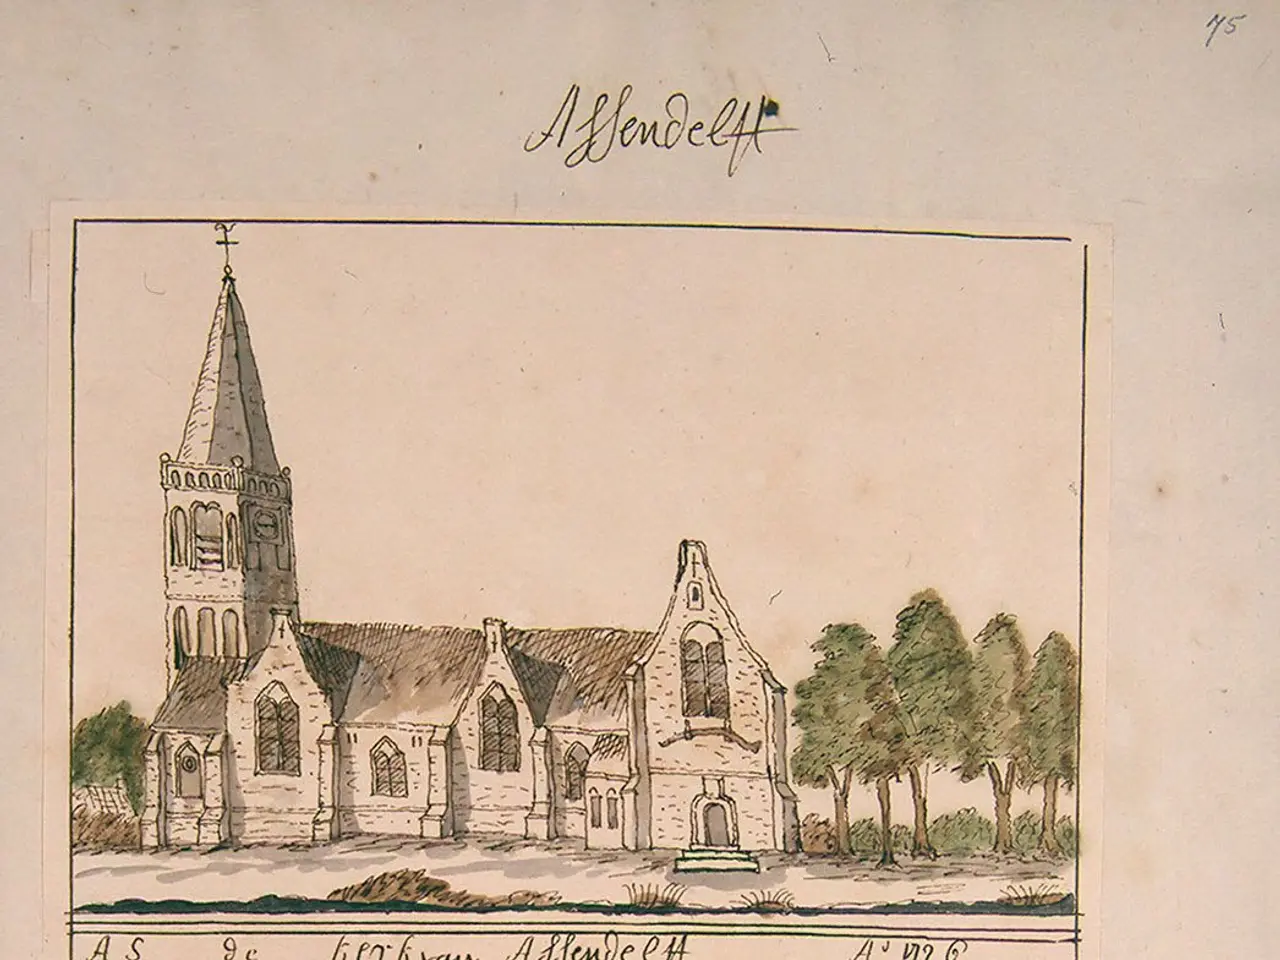 75
Assendelft
AS de kerk van Assendelft Aº 1726